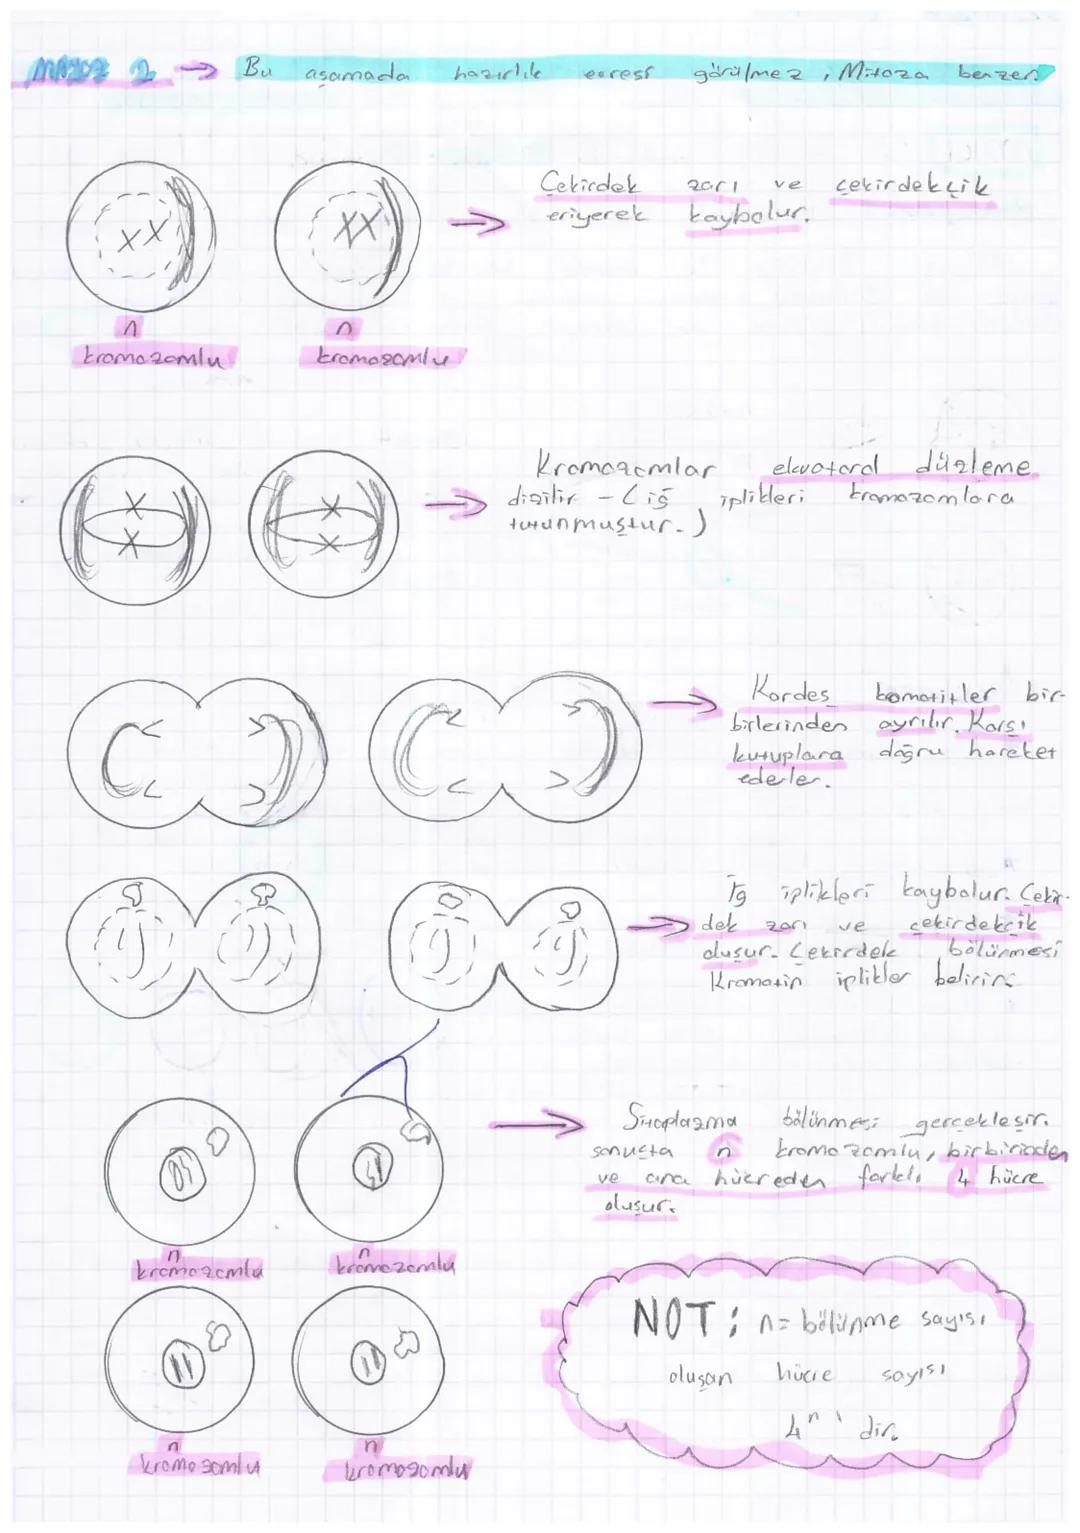 MAYOZ 2 → Bu aşamada hazırlık evresi görülmez, Mitoza benzer.
Çekirdek zarı ve çekirdekçik
eriyerek kaybolur.
n
n
kromozomlu
kromozomlu
Kromozomlar ekvatoral düzleme
dizilir - (iğ iplikleri kromozomlara
tutunmuştur.)
Kardeş komatitler bir-
birlerinden ayrılır. Karşı
kutuplara doğru hareket
ederler.
İğ iplikleri kaybolur. Çekir-
dek zarı ve çekirdekçik
oluşur. Çekirdek bölünmesi
Kromatin iplikler belirir.
Sitoplazma bölünmesi gerçekleşir.
sonuçta n kromozomlu, birbirinden
ve ana hücreden farklı 4 hücre
oluşur.
n
n
kromozomlu
kromozomlu
NOT: n= bölünme sayısı
oluşan hücre sayısı
4ⁿ' dir.
n
n
kromozomlu
kromozomlu